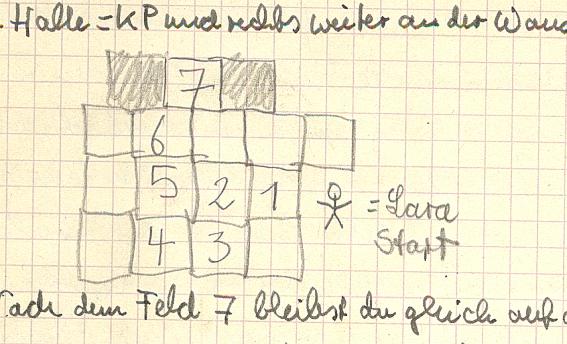 . Halle = KP und rechts weiter an der Wand
7
6
5 2 1 = Lara
4 3 Start
Nach dem Feld 7 bleibst du gleich auf d